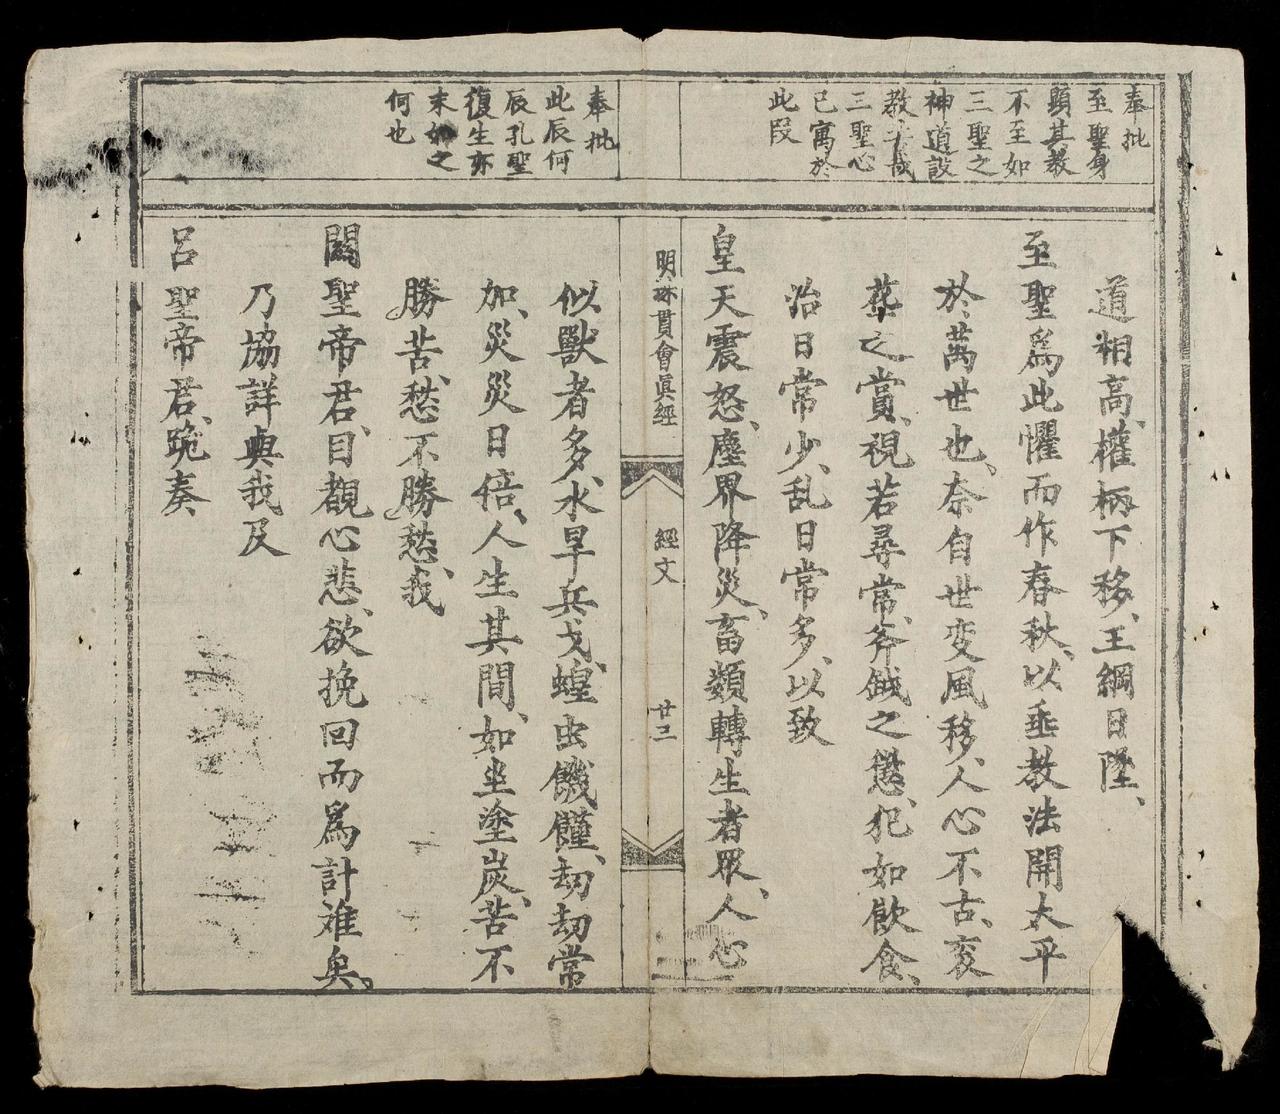 奉批
至聖身
顕其教
不至如
三聖之
神道設
教
三聖心
已寓於
此段
道相高、權柄下移、王綱日墜、
至聖爲此懼而作春秋、以垂教法開太平
於萬世也、奈自世变風移、人心不古、衮
之賞、視若尋常、斧鉞之懲、犯如飲食、
治日常少、乱日常多、以致
皇天震怒、塵界降災、畜類轉生者眾、人心
明珠貫會眞經
經文
廿三
奉批
此辰何
辰孔聖
復生亦
末如之
何也
似獸者多、水旱兵戈、蝗虫饑饉、劫劫常
加、災災日倍、人生其間、如坐塗炭、苦不
勝苦、愁不勝愁、我
関聖帝君、目覩心悲、欲挽回而爲計难矣、
乃協詳與我及
呂聖帝君、跪奏